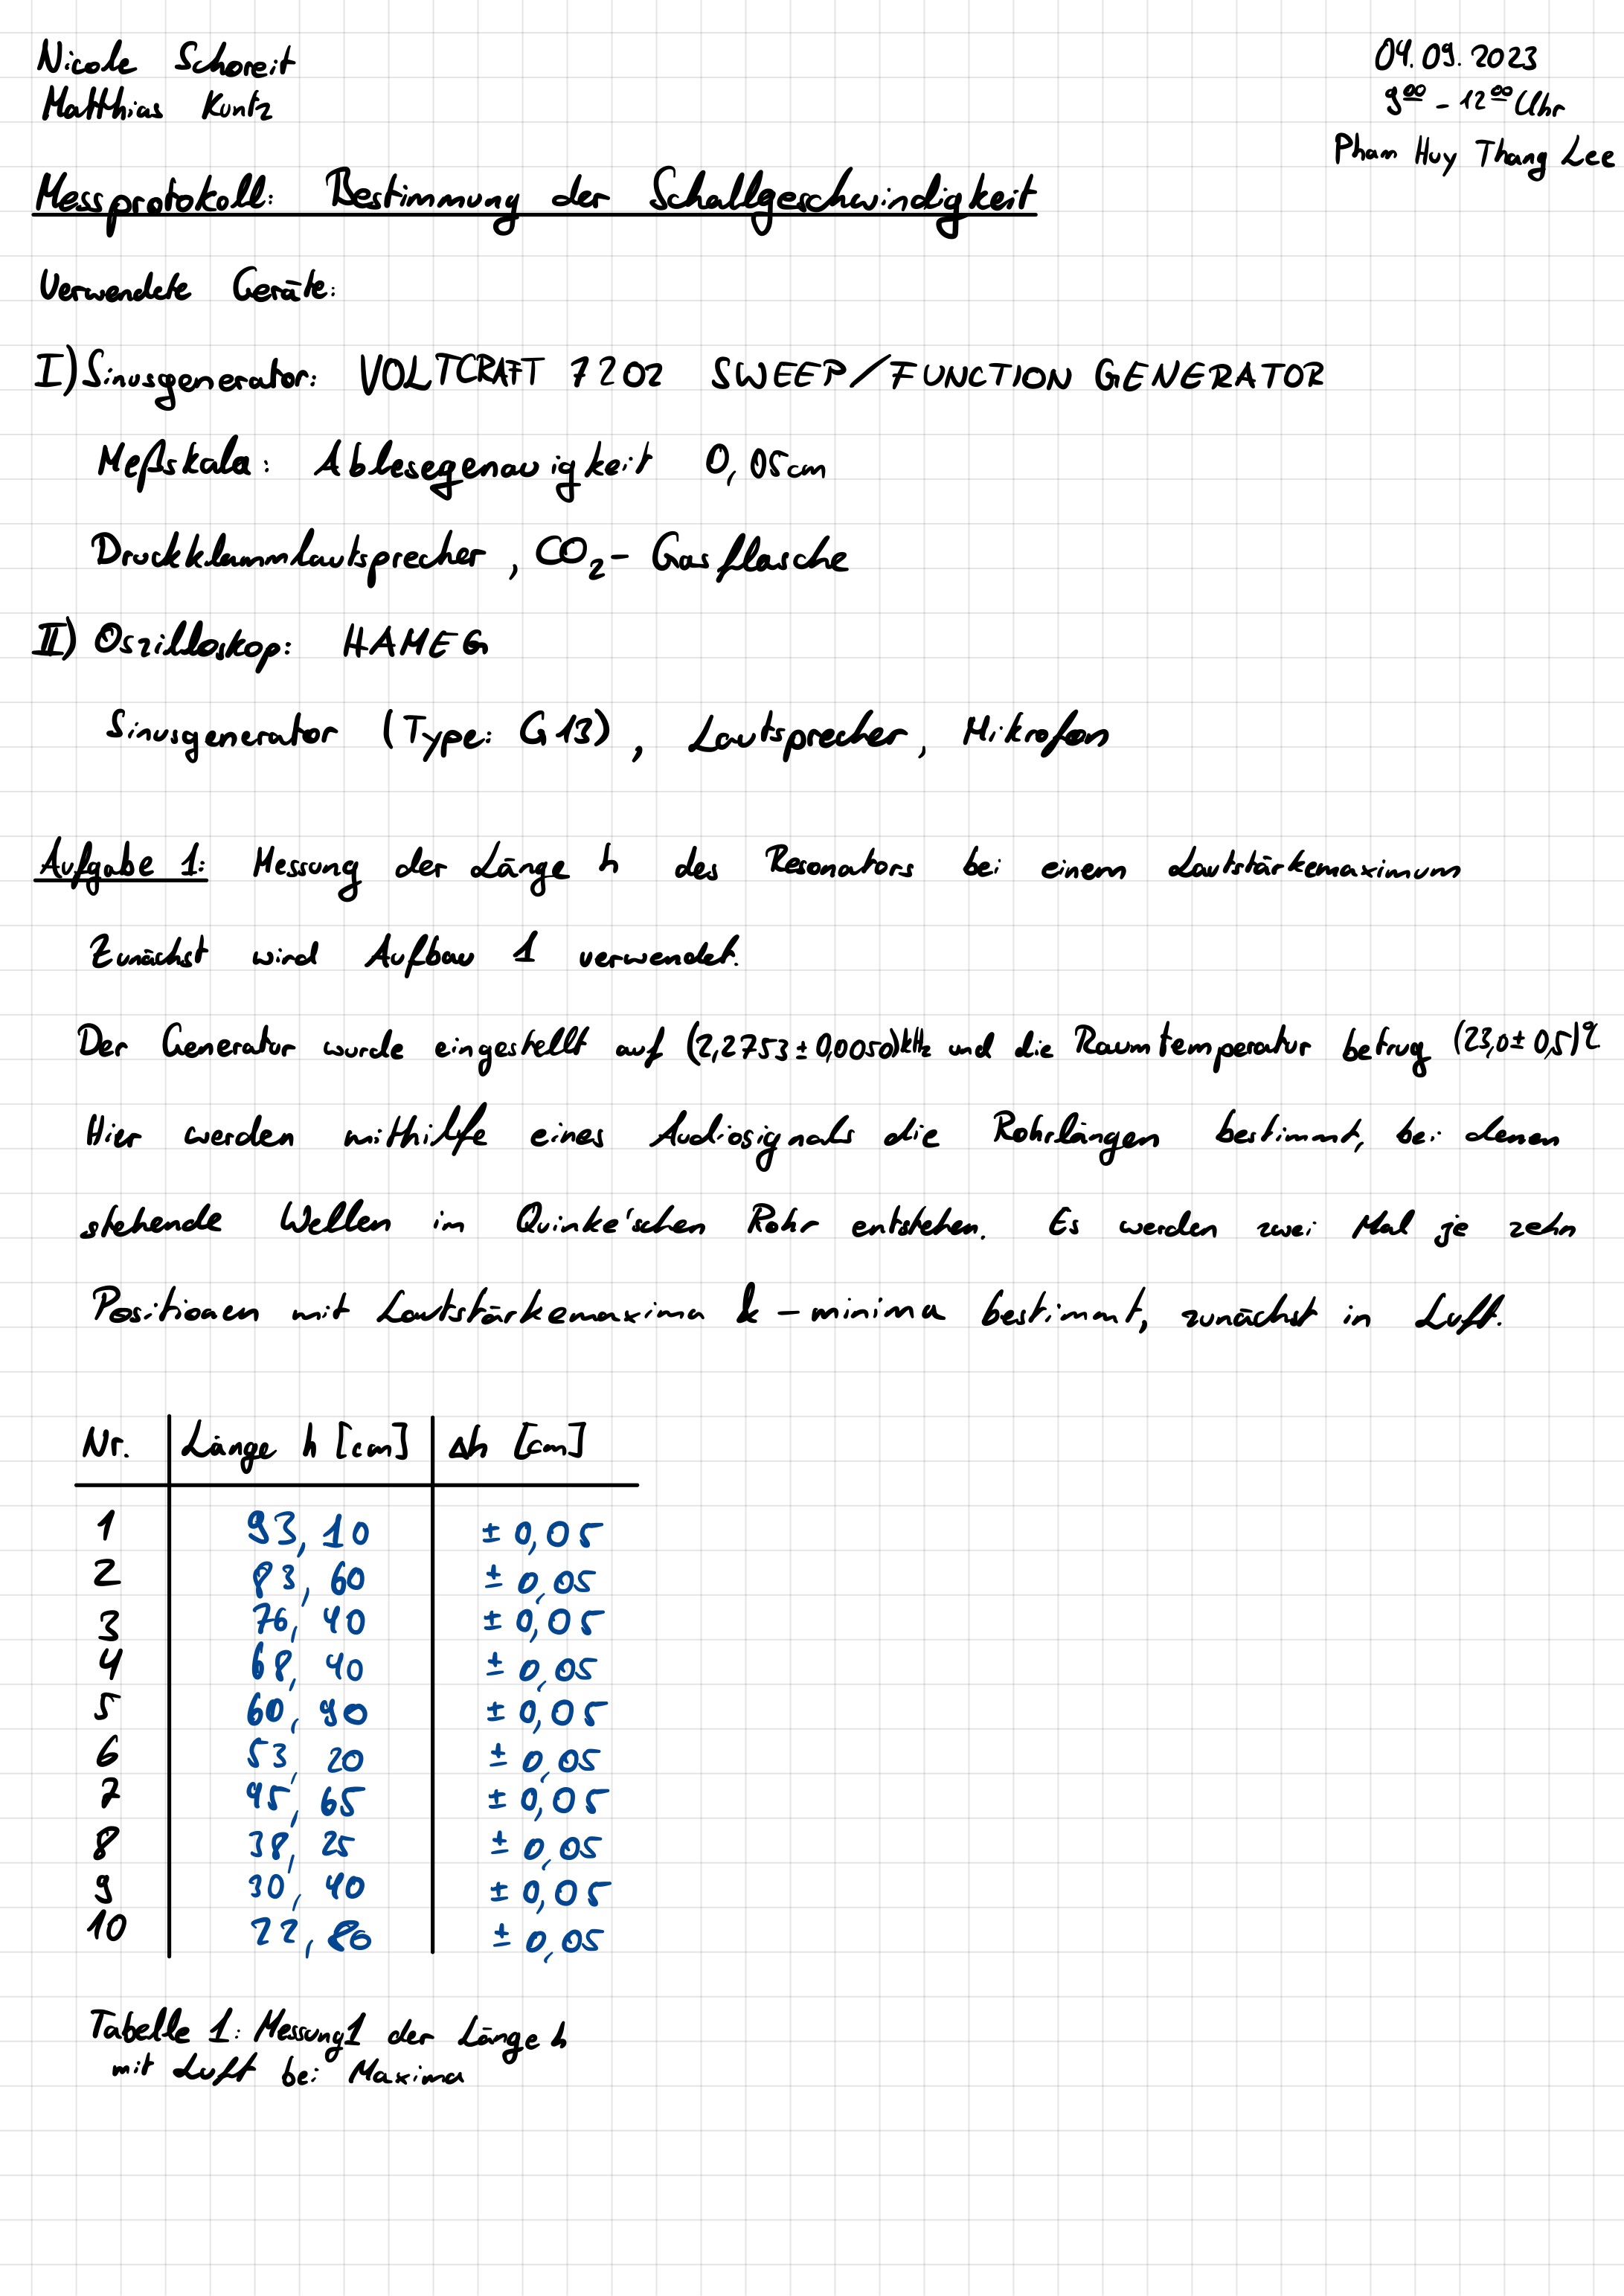 Nicole Schoreit
Matthias Kuntz
04.09.2023
9⁰⁰ - 12⁰⁰ Uhr
Pham Huy Thang Lee
Messprotokoll: Bestimmung der Schallgeschwindigkeit
Verwendete Geräte:
I) Sinusgenerator: VOLTCRAFT 7202 SWEEP/FUNCTION GENERATOR
Meßskala: Ablesegenauigkeit 0,05cm
Druckklammlautsprecher, CO₂- Gasflasche
II) Oszilloskop: HAMEG
Sinusgenerator (Type: G13), Lautsprecher, Mikrofon
Aufgabe 1: Messung der Länge h des Resonators bei einem Lautstärkemaximum
Zunächst wird Aufbau 1 verwendet.
Der Generator wurde eingestellt auf (2,2753 ± 0,0050)kHz und die Raumtemperatur betrug (23,0 ± 0,5)°C
Hier werden mithilfe eines Audiosignals die Rohrlängen bestimmt, bei denen
stehende Wellen im Quinke'schen Rohr entstehen. Es werden zwei Mal je zehn
Positionen mit Lautstärkemaxima & -minima bestimmt, zunächst in Luft.
Nr. Länge h [cm] Δh [cm]
1 93,10 ± 0,05
2 83,60 ± 0,05
3 76,40 ± 0,05
4 68,40 ± 0,05
5 60,90 ± 0,05
6 53,20 ± 0,05
7 45,65 ± 0,05
8 38,25 ± 0,05
9 30,40 ± 0,05
10 22,80 ± 0,05
Tabelle 1: Messung1 der Länge h
mit Luft bei Maxima